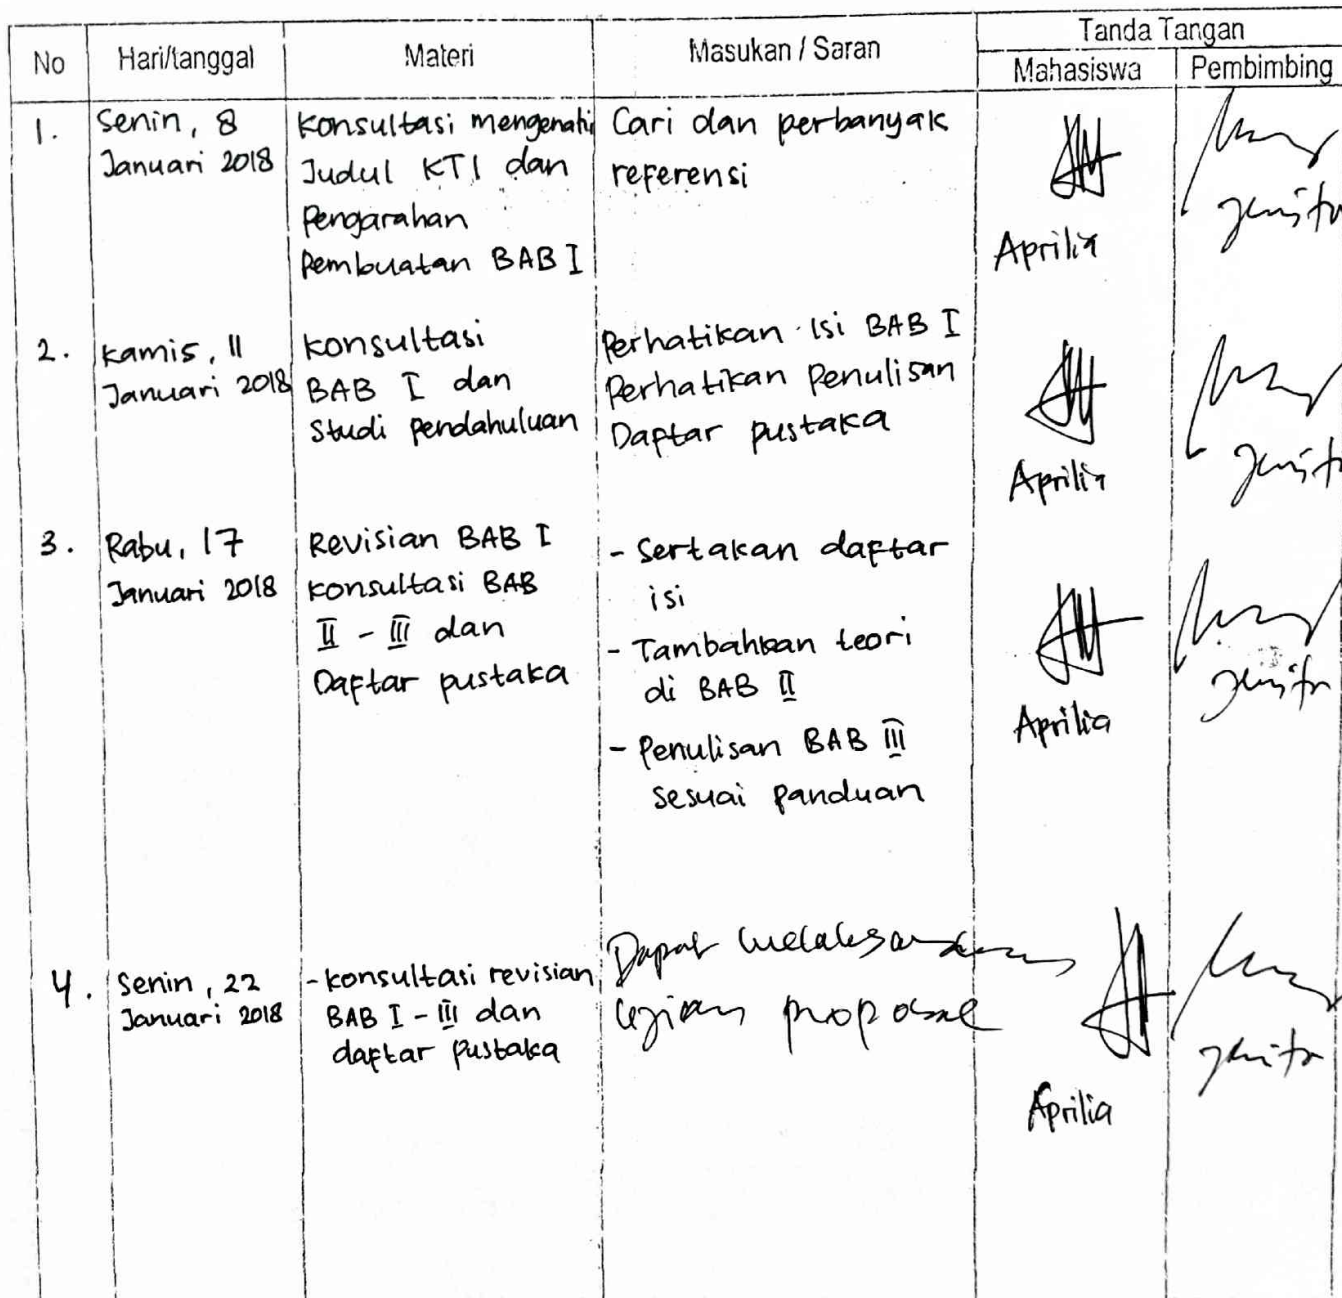 No Hari/tanggal Materi Masukan / Saran Tanda Tangan
Mahasiswa Pembimbing
1. Senin, 8 Januari 2018
Konsultasi mengenai
Judul KTI dan
Pengarahan
Pembuatan BAB I
Cari dan perbanyak
referensi
Aprilia
2. Kamis, 11
Januari 2018
Konsultasi
BAB I dan
Studi Pendahuluan
Perhatikan Isi BAB I
Perhatikan Penulisan
Daftar pustaka
Aprilia
3. Rabu, 17
Januari 2018
Revisian BAB I
Konsultasi BAB
II - III dan
Daftar pustaka
- Sertakan daftar
isi
- Tambahkan teori
di BAB II
- Penulisan BAB III
sesuai panduan
Aprilia
4. Senin, 22
Januari 2018
- Konsultasi revisian
BAB I - III dan
daftar Pustaka
Dapat melaksanakan
Ujian proposal
Aprilia